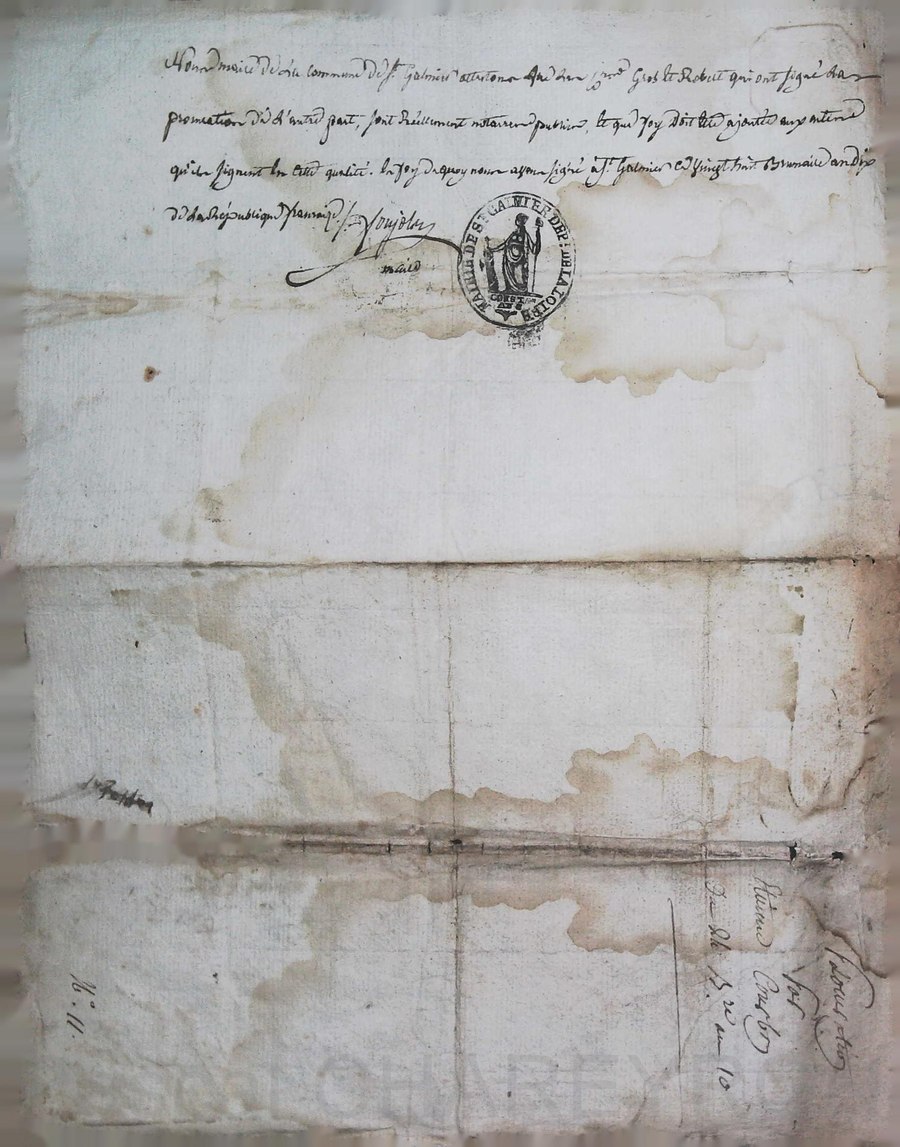 Nous maire de la Commune de St. Galmier attestons que les Gros et Robert qui ont signé la
procuration de l'autre part, sont Réellement notaires publics, et que foy doit etre ajoutée aux actes
qu'ils signent en cette qualité. En foy de quoy nous avons signé a St. Galmier ce vingt huit Brumaire an dix
de la République française
maire
MAIRIE DE ST GALMIER DEP. DE LA LOIRE
Procuration
Par
Etienne
Du 28 B.re an 10
N.° 11.